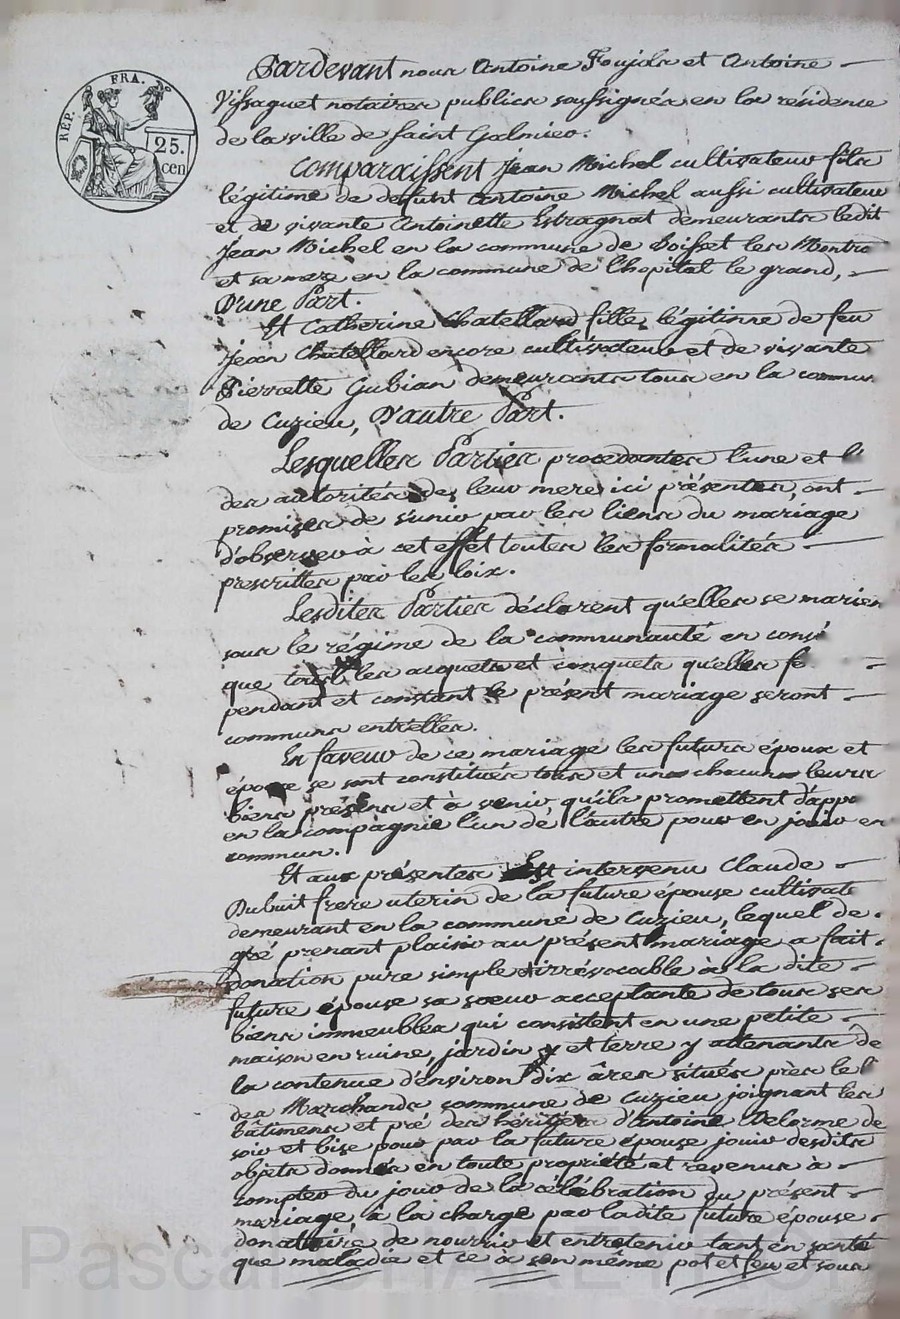 REP. FRA.
25.
cen
Pardevant nous Antoine Foujols et Antoine
Vissaguet notaires publics soussignés en la résidence
de la ville de saint Galmier.
Comparaissent Jean Michel cultivateur fils
légitime de defunt Antoine Michel aussi cultivateur
et de vivante Antoinette Estragnat demeurants ledit
Jean Michel en la commune de Boisset les Montro
et sa mere en la commune de l'hopital le grand,
D'une Part.
Et Catherine Chatellard fille légitime de feu
Jean Chatellard encore cultivateur et de vivante
Pierrette Gubian demeurants tous en la commu
de Cuzieu, D'autre Part.
Lesquelles Parties procedantes l'une et l'
des autorités de leur mere ici présentes, ont
promises de s'unir par les liens du mariage
d'observer à cet effet toutes les formalités
prescrittes par les loix.
Lesdites Parties déclarent qu'elles se marien
sous le régime de la communauté en consé
que tous les acquets et conquets qu'elles fe
pendant et constant le présent mariage seront
communs entr'elles.
En faveur de ce mariage les futurs époux et
épouse se sont constitués tous et uns chacuns leurs
biens présens et à venir, qu'ils promettent d'appo
en la compagnie l'un de l'autre pour en jouir en
commun.
Et aux présentes est intervenu Claude
Dubuit frere uterin de la future épouse cultivate
demeurant en la commune de Cuzieu, lequel de
gré prenant plaisir au présent mariage a fait
donation pure simple et irrévocable à la dite
future épouse sa soeur acceptante de tous ses
biens immeubles qui consistent en une petite
maison en ruine, jardin et terre y attenants de
la contenue d'environ dix âres situés près le
des Marchands commune de Cuzieu joignant les
bâtimens et pré des héritiers d'Antoine Delorme de
soir et bise pour par la future épouse jouir desdits
objets donnés en toute propriété et revenus à
compter du jour de la célébration du présent
mariage, à la charge par ladite future épouse
donataire de nourrir et entretenir tant en santé
que maladie et ce à son même pot et feu et sous
Pascal